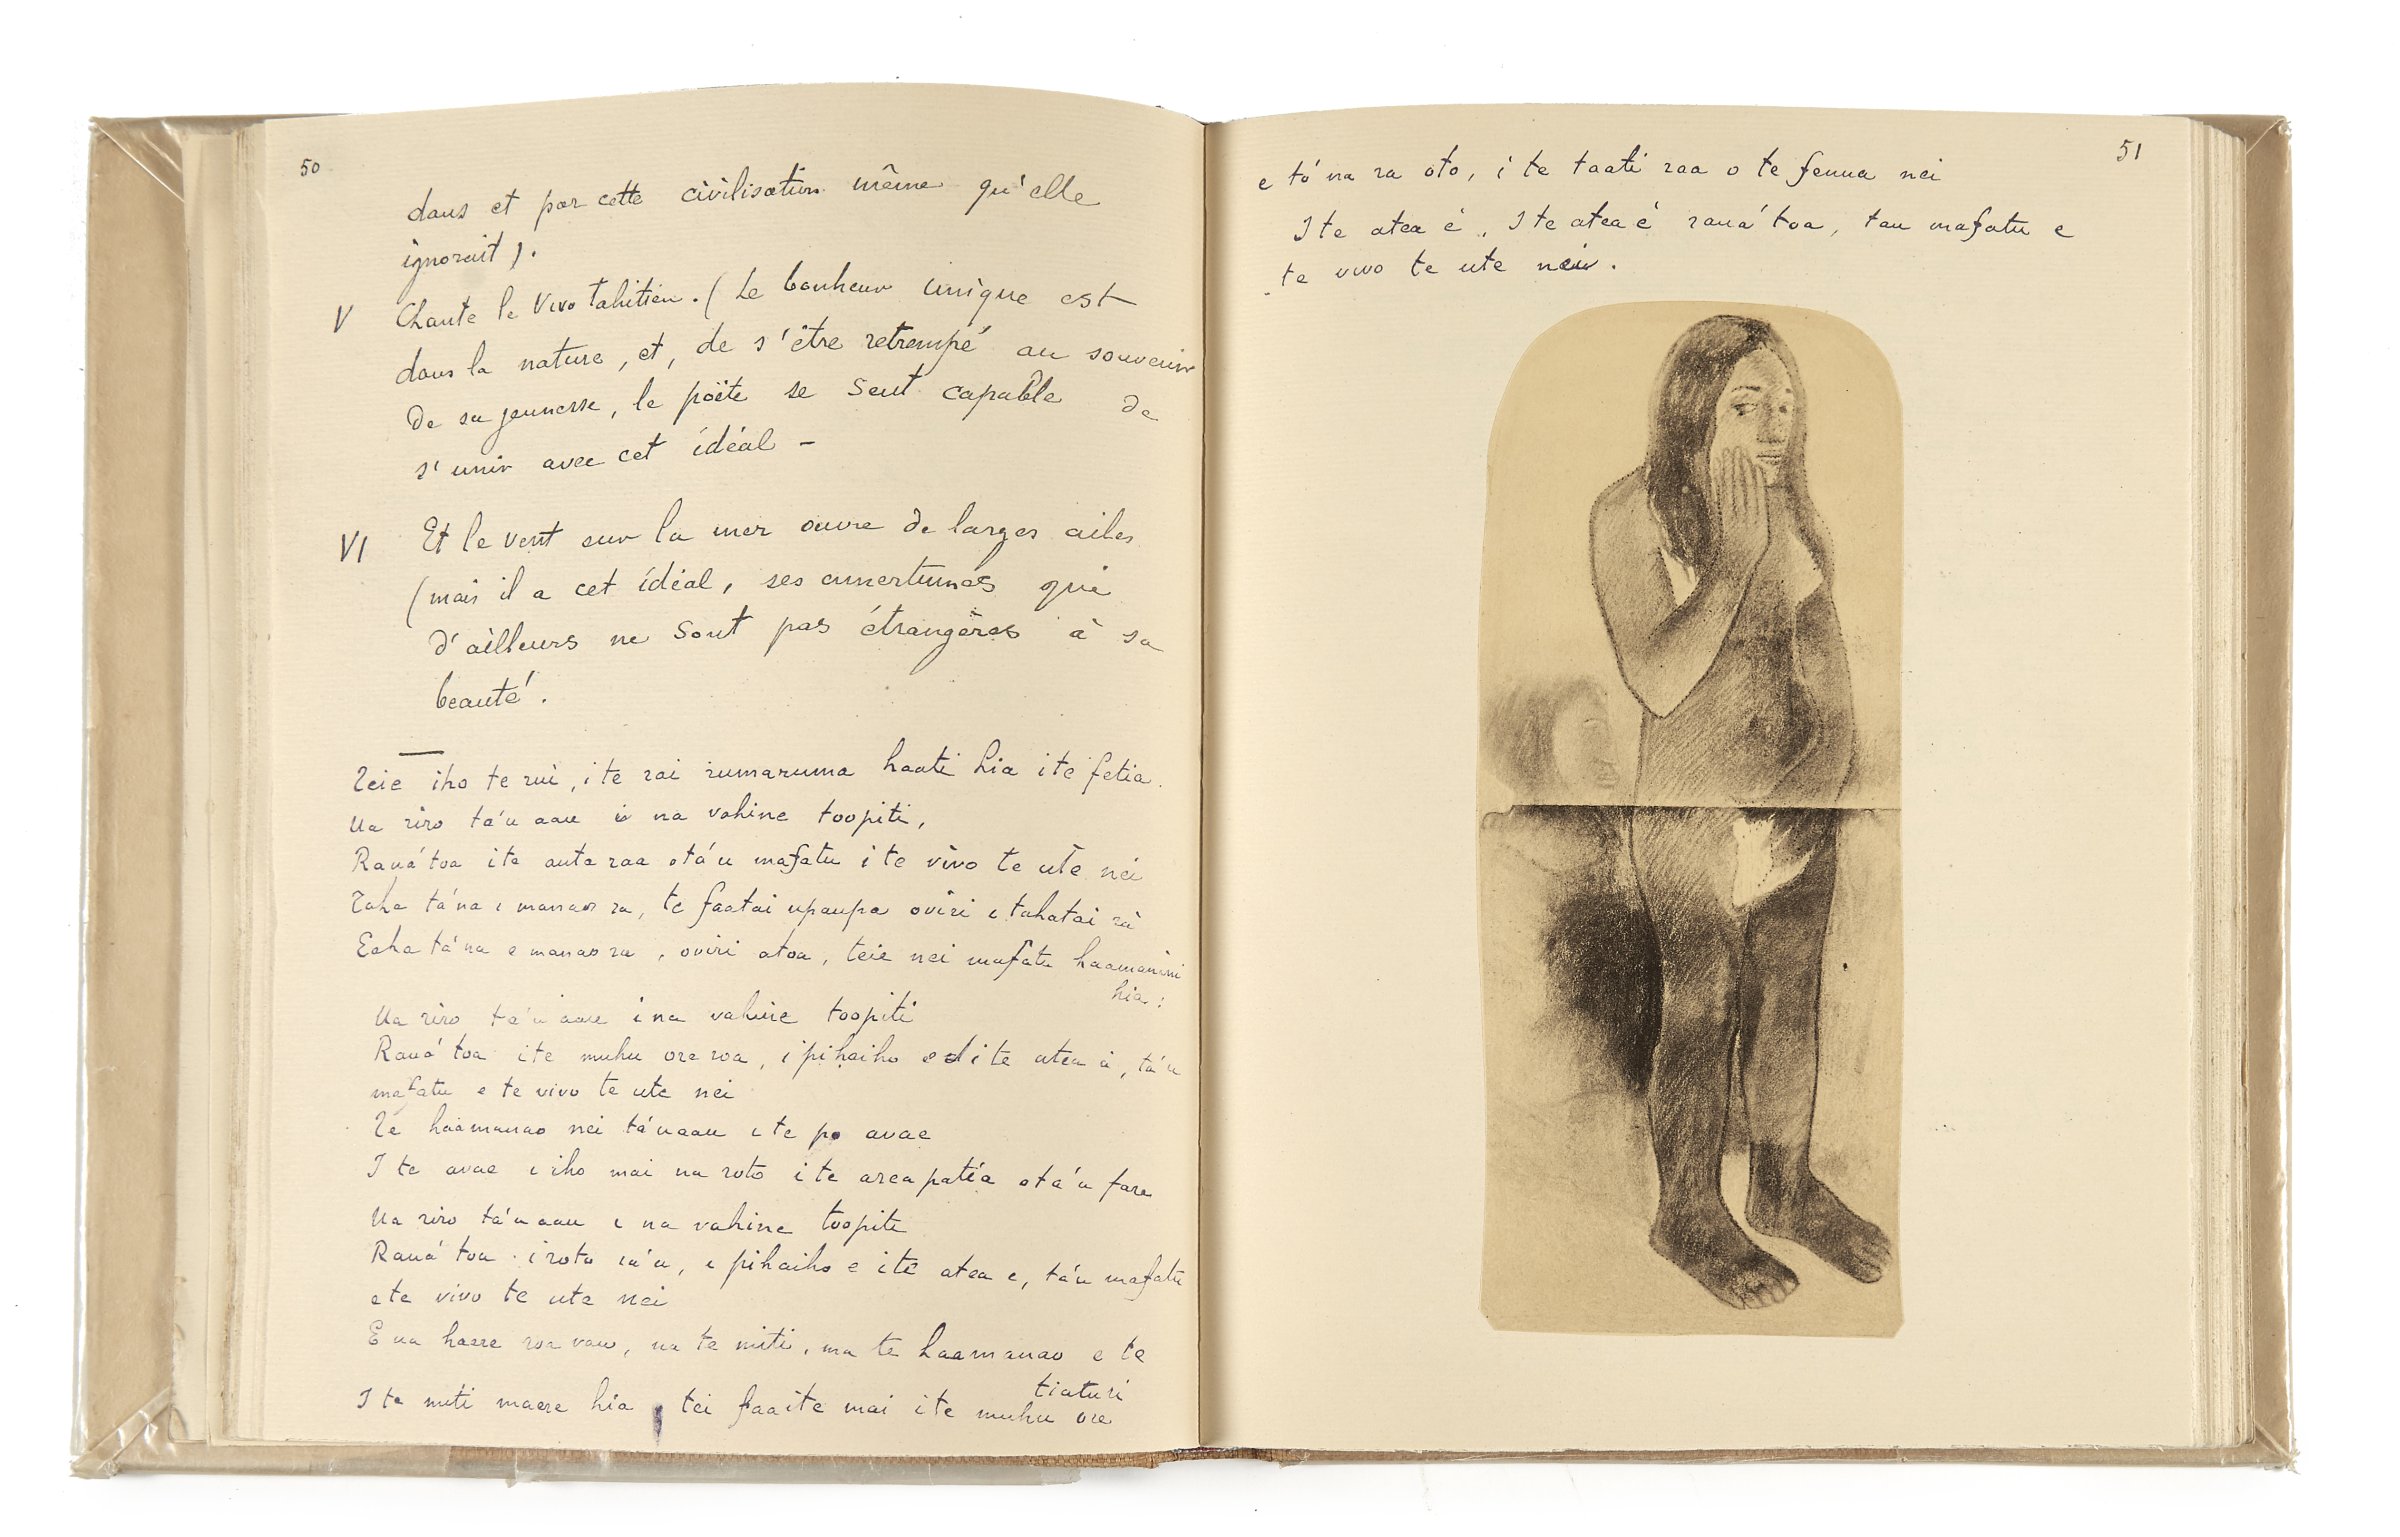 50
dans et par cette civilisation même qu'elle
ignorait).
V Chante le Vivo tahitien. (Le bonheur unique est
dans la nature, et, de s'être retrempé au souvenir
de sa jeunesse, le poëte se sent capable de
s'unir avec cet idéal –
VI Et le vent sur la mer ouvre de larges ailes
(mais il a cet idéal, ses amertumes qui
d'ailleurs ne sont pas étrangères à sa
beauté.
Teie iho te rui, i te rai rumaruma haati hia i te fetia.
Ua riro tá'u aau na vahine toopiti,
Rauá toa i te auta raa otá'u mafatu i te vivo te ute nei
tá'na e manao ra, te faatai upaupa oviri e tahatai rà
Eaha tá'na e manao ra, oviri atoa, teie nei mafatu haamanini
hia:
Ua riro tá'u aau i na vahine toopiti
Rauá toa i te muhu ore roa, i pihaiho i te atea é, tá'u
mafatu e te vivo te ute nei
Te haamanao nei tá'u aau e te po avae
I te avae e iho mai na roto i te area patia otá'u fare
Ua riro tá'u aau e na vahine toopite
Rauá toa i roto iá'u, e pihaiho e i te atea e, tá'u mafatu
e te vivo te ute nei
E na haere roa vau, na te miti, ma te haamanao e te
tiaturi
I te miti maere hia, tei faaite mai i te muhu ore
51
e tó na ra oto, i te taati raa o te fenua nei
I te atea é, I te atea é rauá toa, tau mafatu e
te vivo te ute nei.